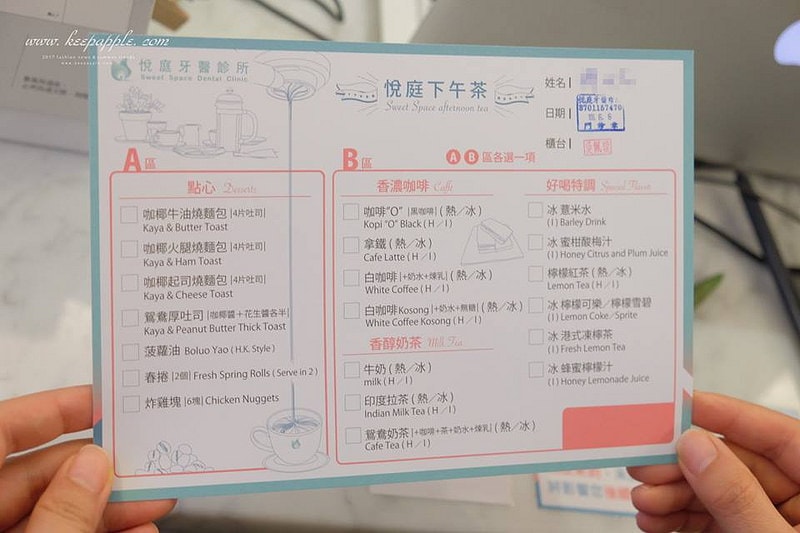 www.keepapple.com
悅庭牙醫診所
Sweet Space Dental Clinic
悅庭下午茶
Sweet Space afternoon tea
姓名
日期
櫃台
A區
B區
A B 區各選一項
點心 Desserts
咖椰牛油燒麵包 |4片吐司|
Kaya & Butter Toast
咖椰火腿燒麵包 |4片吐司|
Kaya & Ham Toast
咖椰起司燒麵包 |4片吐司|
Kaya & Cheese Toast
鴛鴦厚吐司 |咖椰醬+花生醬各半|
Kaya & Peanut Butter Thick Toast
菠蘿油 Boluo Yao ( H.K. Style )
春捲 |2個| Fresh Spring Rolls ( Serve in 2 )
炸雞塊 |6塊| Chicken Nuggets
香濃咖啡 Caffe
咖啡"O" |黑咖啡| ( 熱／冰 )
Kopi "O" Black ( H／I )
拿鐵 ( 熱／冰 )
Cafe Latte ( H／I )
白咖啡 |+奶水+煉乳| ( 熱／冰 )
White Coffee ( H／I )
白咖啡Kosong |+奶水+無糖| ( 熱／冰 )
White Coffee Kosong ( H／I )
香醇奶茶 Milk Tea
牛奶 ( 熱／冰 )
milk ( H／I )
印度拉茶 ( 熱／冰 )
Indian Milk Tea ( H／I )
鴛鴦奶茶 |+咖啡+茶+奶水+煉乳| ( 熱／冰 )
Cafe Tea ( H／I )
好喝特調 Special Flavor
冰 薏米水
( I ) Barley Drink
冰 蜜柑酸梅汁
( I ) Honey Citrus and Plum Juice
檸檬紅茶 ( 熱／冰 )
Lemon Tea ( H／I )
冰 檸檬可樂／檸檬雪碧
( I ) Lemon Coke／Sprite
冰 港式凍檸茶
( I ) Fresh Lemon Tea
冰 蜂蜜檸檬汁
( I ) Honey Lemonade Juice